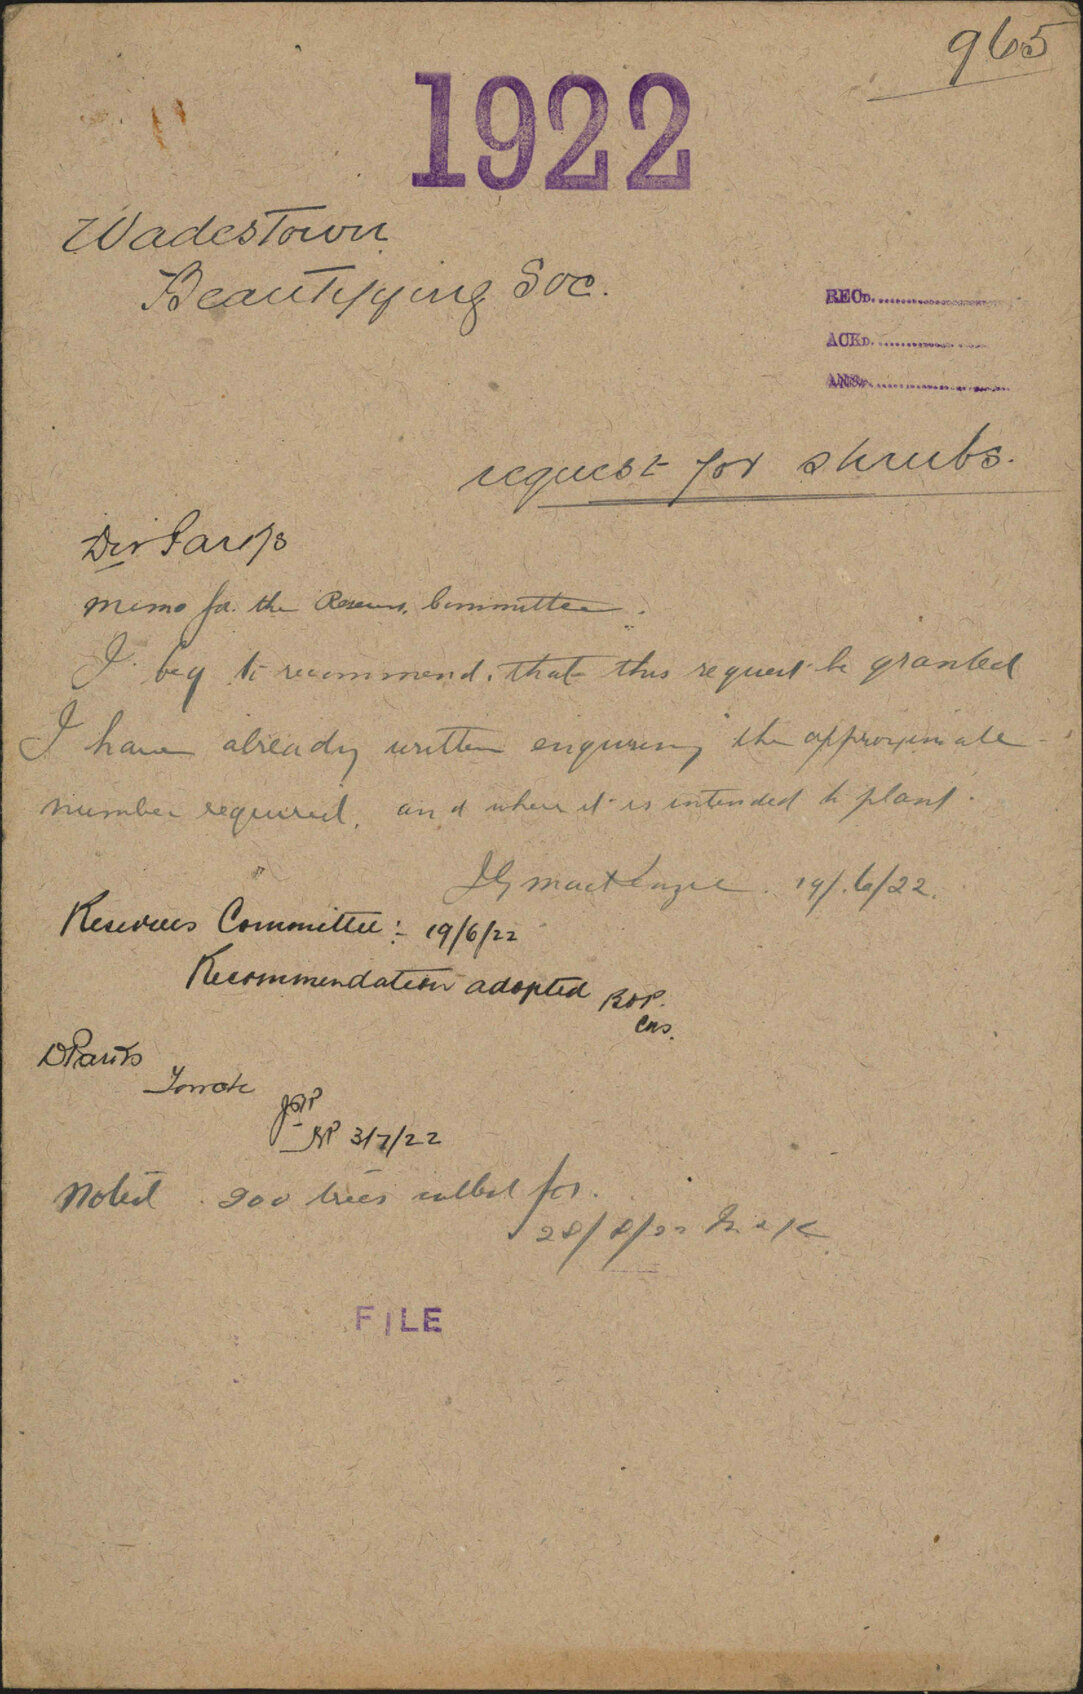 965
1922
Wadestown
Beautifying Soc.
RECD.
ACKD.
ANSD.
request for shrubs.
Dir Parks
Memo for the Reserves Committee.
I beg to recommend, that this request be granted
I have already written enquiring the approximate
number required, and where it is intended to plant.
JG MacKenzie. 19/.6/22.
Reserves Committee:- 19/6/22
Recommendation adopted
D Parks
To note
3/7/22
Noted. 200 trees called for.
28/8/22
FILE